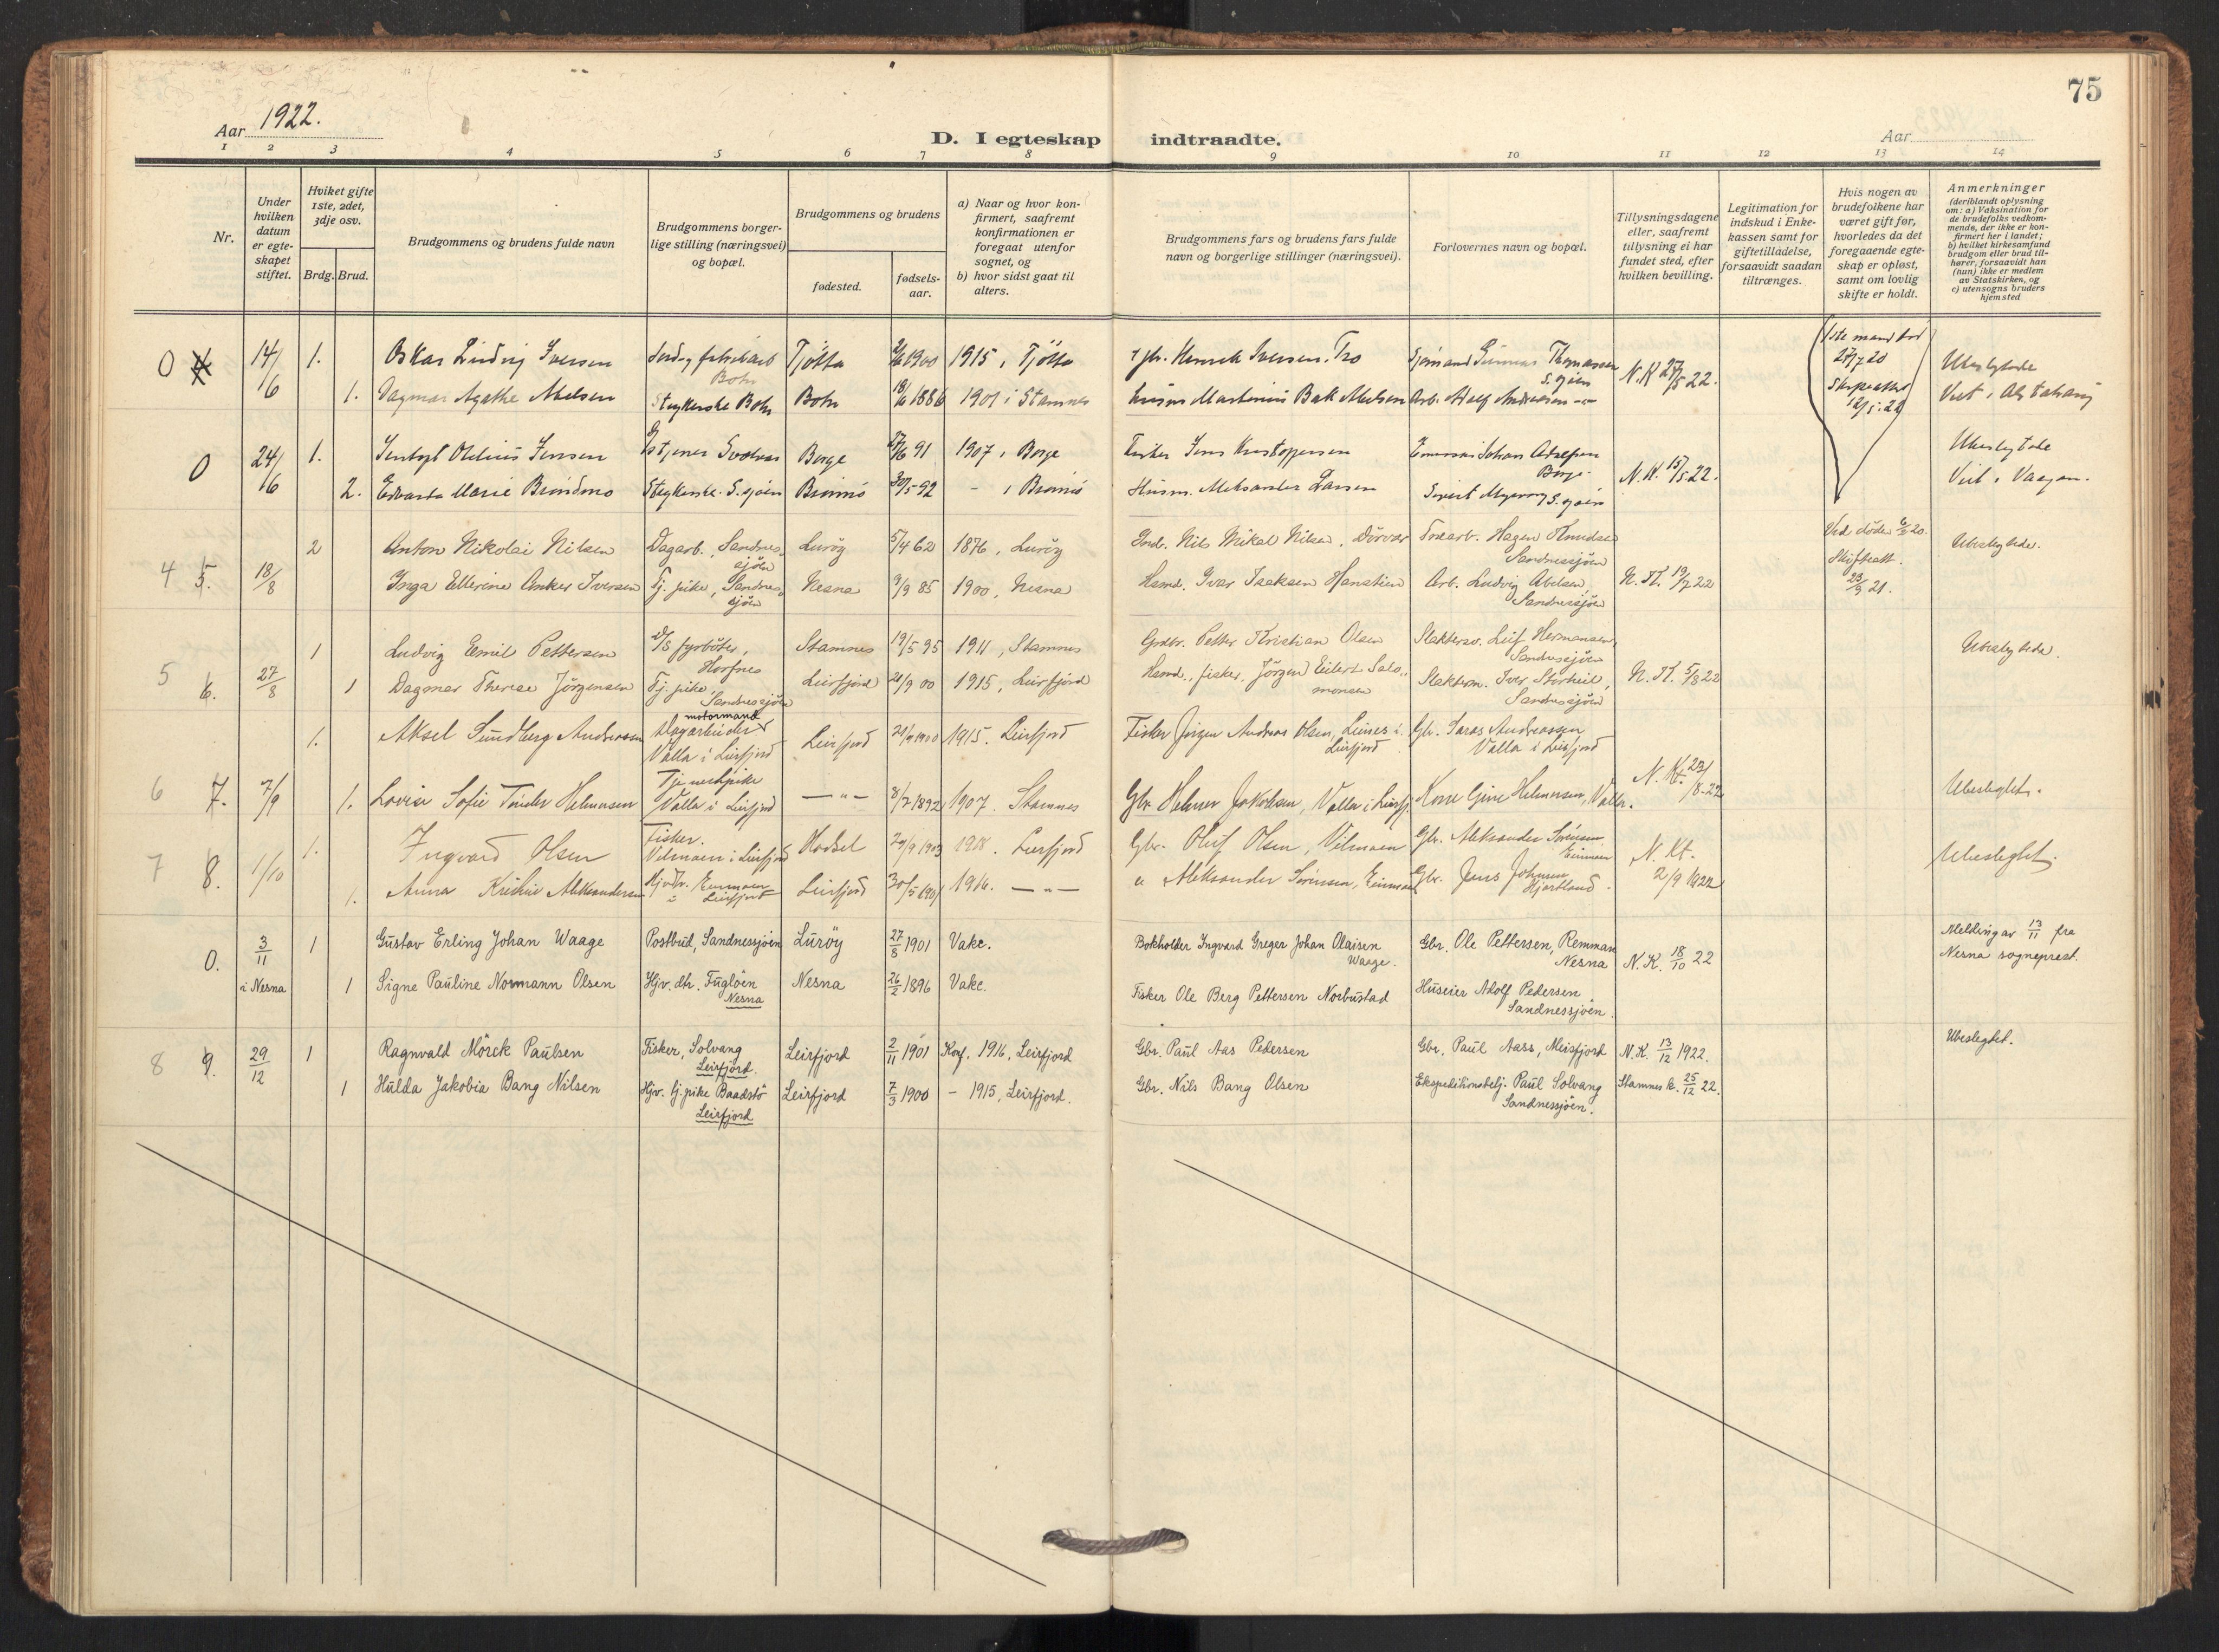 75
Aar 1922.
D. I egteskap indtraadte.
Aar
1 2 3 4 5 6 7 8 9 10 11 12 13 14
Nr.
Under hvilken datum er egteskapet stiftet.
Hviket gifte 1ste, 2det, 3dje osv.
Brdg. Brud.
Brudgommens og brudens fulde navn
Brudgommens borgerlige stilling (næringsvei) og bopæl.
Brudgommens og brudens
fødested.
fødselsaar.
a) Naar og hvor konfirmert, saafremt konfirmationen er foregaat utenfor sognet, og
b) hvor sidst gaat til alters.
Brudgommens fars og brudens fars fulde navn og borgerlige stillinger (næringsvei).
Forlovernes navn og bopæl.
Tillysningsdagene eller, saafremt tillysning ei har fundet sted, efter hvilken bevilling.
Legitimation for indskud i Enkekassen samt for giftetilladelse, forsaavidt saadan tiltrænges.
Hvis nogen av brudefolkene har været gift før, hvorledes da det foregaaende egteskap er opløst, samt om lovlig skifte er holdt.
Anmerkninger (deriblandt oplysning om: a) Vaksination for de brudefolks vedkommende, der ikke er konfirmert her i landet; b) hvilket kirkesamfund brudgom eller brud tilhører, forsaavidt han (hun) ikke er medlem av Statskirken, og c) utensogns bruders hjemsted
0 14/6 1. Oskar Ludvig Iversen Bohr Tjötta 1900 1915, Tjötta Henrik Iversen, Tro Thomassen S.sjöen N.K. 27/5 22. 27/7 20 Ubeslegtede
1. Dagmar Agathe Abelsen Bohr Bohr 1886 1901 i Stamnes Martinius Bak Abelsen Arb. Adolf Andreasen Viet i Alstahaug
0 24/6 1. Jensen Borge 91 1907, Borge Fisker Jens Johan Adolfsen Borge N.K. 15/5 22. Ubeslegtede
2. Edvarda Marie Brundmo S.sjöen Brönnö 30/5 92 - i Brönnö Husm. Aleksander Larsen S.sjöen Viet i Vaagan.
4 5. 18/8 2 Anton Nikolai Nilsen Dagarb., Sandnessjöen Luröy 5/4 62 1876, Luröy Nils Mikal Nilsen, Dörvær Hagen Knudsen Sandnessjöen N.K. 19/7 22 Ved döden 20. Skifteatt. 23/9 21. Ubeslegtede.
Inga Ellerine Anker Iversen Tj. pike, Sandnessjöen Nesna 3/9 85 1900, Nesna Ivar Isaksen Arb. Ludvig Abelsen, Sandnessjöen
5 6. 27/8 1 Ludvig Emil Pettersen D/S fyrböter, Stamnes 19/5 95 1911, Stamnes Petter Kristian Olsen Leif Hermansen, Sandnessjöen N.K. 5/8 22 Ubeslegtede.
1 Dagmar Therese Jörgensen Tj. pike, Sandnessjöen Leirfjord 21/9 00 1915, Leirfjord fisker, Jörgen Eilert Salomonsen Iver Sandnessjöen
6 7. 7/9 1. Aksel Sundberg Andreassen motormand Dagarbeider Valla i Leirfjord Leirfjord 1900 1915. Leirfjord Fisker Jörgen Andreas Olsen, Leines i Leirfjord Gbr. Andreassen Valla i Leirfjord
1. Lovise Sofie Tender Helmersen Tjenestepike Valla i Leirfjord — " — 8/7 1892 1907. Stamnes Gbr. Helmer Jakobsen, Valla i Leirfj. Kone Gine Helmersen, Valla. N. Kt. 23/8-22 Ubeslegtet.
7 8. 1/10 1. Ingvard Olsen Fisker. Leirfjord Hadsel 1903 1918. Leirfjord Gbr. Oluf Olsen, Gbr. Aleksander Sörensen N. Kt. 2/9 1922 Ubeslegtet.
1. Anna Kristine Aleksandersen Leirfjord Leirfjord 30/5 1901 1916. — " — " Aleksander Sörensen, Gbr. Jens Johnsen, Hjartland
0. 3/11 i Nesna 1 Gustav Erling Johan Waage Postbud, Sandnessjöen Luröy 27/8 1901 Vake. Bokholder Ingvard Greger Johan Olaisen Waage. Gbr. Ole Pettersen, Remman Nesna N.K. 18/10 22 Melding av 13/11 fra Nesna sogneprest.
1 Signe Pauline Normann Olsen Hjv. dtr. Fuglöen Nesna Nesna 26/2 1896 Vake. Fisker Ole Berg Pettersen Norbustad Huseier Adolf Pedersen Sandnessjöen.
8 9. 29/12 1 Ragnvald Mörck Paulsen Fisker, Solvang Leirfjord. Leirfjord 2/11 1901 Konf. 1916, Leirfjord Gbr. Paul Aas Pedersen Gbr. Paul Aass, Meisfjord N.K. 13/12 1922. Ubeslegtet.
1 Hulda Jakobia Bang Nilsen Hjv. tj. pike Baadstö Leirfjord Leirfjord 7/3 1900 - 1915, Leirfjord. Gbr. Nils Bang Olsen Ekspeditionsbetj. Paul Solvang Sandnessjöen. Stamnes k. 25/12 22.